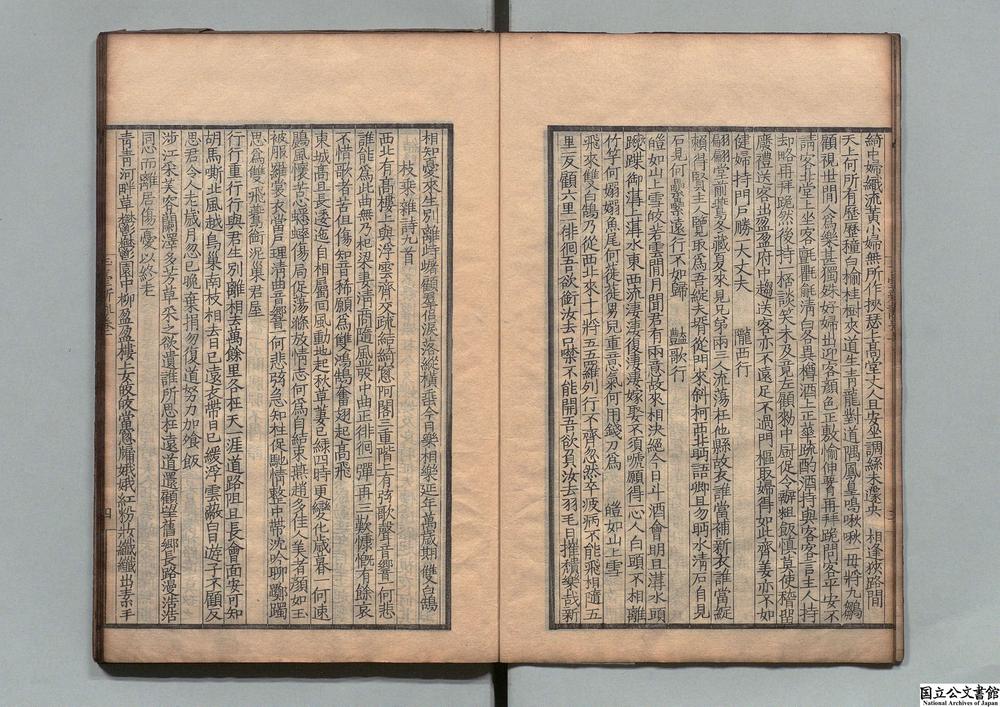 綺中婦織流黃小婦無所作挾瑟上高堂丈人且安坐調絲未遽央　相逢狹路間
天上何所有歷歷種白榆桂樹夾道生青龍對道隅鳳皇鳴啾啾一母將九鶵
顧視世間人為樂甚獨殊好婦出迎客顏色正敷愉伸𦝫再拜跪問客平安不
請客北堂上坐客氈氍毹清白各異樽酒上正華疏酌酒持與客客言主人持
却略再拜跪然後持一桮談笑未及竟左顧勑中厨促令辦粗飯慎莫使稽留
廢禮送客出盈盈府中趨送客亦不遠足不過門樞取婦得如此齊姜亦不如
健婦持門戶勝一大丈夫　隴西行
翩翩堂前鷰冬藏夏來見兄弟兩三人流蕩在他縣故衣誰當補新衣誰當綻
賴得賢主人覽取為吾䋎夫壻從門來斜柯西北眄語卿且勿眄水清石自見
石見何纍纍遠行不如歸　豔歌行
皚如山上雪皎若雲間月聞君有兩意故來相決絕今日斗酒會明旦溝水頭
蹀躞御溝上溝水東西流淒淒復淒淒嫁娶不須啼願得一心人白頭不相離
竹竿何嫋嫋魚尾何簁簁男兒重意氣何用錢刀為　皚如山上雪
飛來雙白鵠乃從西北來十十將五五羅列行不齊忽然卒疲病不能飛相隨五
里一反顧六里一徘徊吾欲銜汝去口噤不能開吾欲負汝去羽毛日摧穨樂哉新
相知憂來生別離峙𡅕顧羣侶淚落縱橫垂今日樂相樂延年萬歲期　雙白鵠
枚乘雜詩九首
西北有高樓上與浮雲齊交疏結綺窻阿閣三重階上有弦歌聲音響一何悲
誰能為此曲無乃杞梁妻清商隨風發中曲正徘徊一彈再三歎慷慨有餘哀
不惜歌者苦但傷知音稀願為雙鴻鵠奮翅起高飛
東城高且長逶迤自相屬回風動地起秋草萋已綠四時更變化歲暮一何速
鷐風懷苦心蟋蟀傷局促蕩滌放情志何為自結束燕趙多佳人美者顏如玉
被服羅裳衣當戶理清曲音響一何悲弦急知柱促馳情整中帶沈吟聊躑躅
思為雙飛鷰銜泥巢君屋
行行重行行與君生別離相去萬餘里各在天一涯道路阻且長會面安可知
胡馬嘶北風越鳥巢南枝相去日已遠衣帶日已緩浮雲蔽白日遊子不顧反
思君令人老歲月忽已晚棄捐勿復道努力加飡飯
涉江采芙容蘭澤多芳草采之欲遺誰所思在遠道還顧望舊鄉長路漫浩浩
同心而離居傷憂以終老
青青河畔草鬱鬱園中柳盈盈樓上女皎皎當窻牖娥娥紅粉妝纖纖出素手
四
国立公文書館
National Archives of Japan